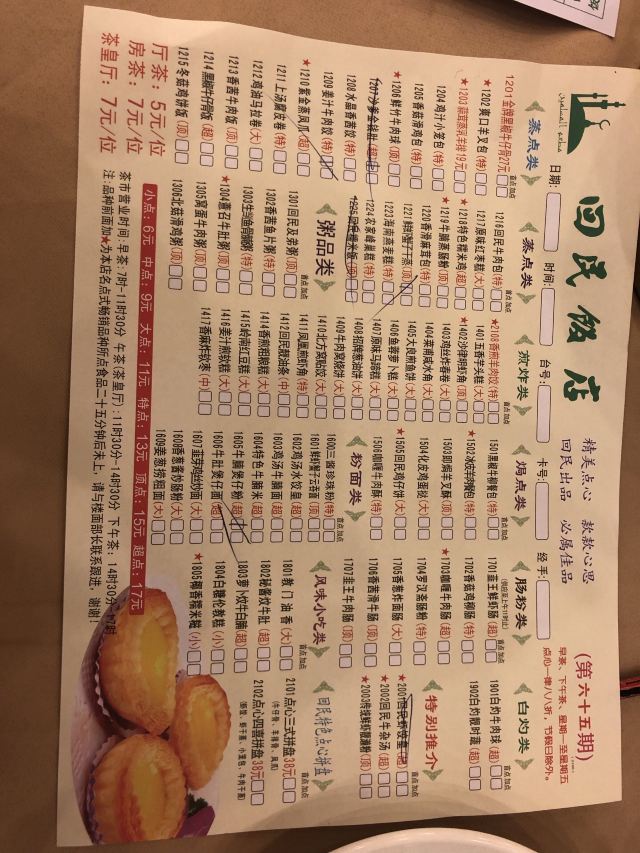 回民饭店
精美点心 款款心思
回民出品 必属佳品
(第六十五期)
早茶、下午茶、星期一至星期五
点心一律八八折，节假日除外。
日期:
时间:
台号:
卡号:
经手:
蒸点类
1201金牌黑椒牛仔骨27元
★1202蜜口羊叉包(特)
1204鸡汁小笼包(特)
1205香菇滑鸡包(特)
★1206鲜竹牛肉球(顶)
1208水晶香茜饺(特)
1209姜汁牛肉饺(特)
★1210紫金蒸凤爪(超)
1211上汤腐皮卷(特)
1212鸡油马拉卷(大)
1213香茜牛肉饭(顶)
1214黑椒牛仔骨饭(超)
1215冬菇鸡饼饭(顶)
蒸点类
1216回民牛肉包(特)
1217原味红枣糕(大)
★1218特色糯米鸡(超)
★1219牛腩蒸肠粉(顶)
1220香滑麻蓉包(特)
1223海南蒸米糕(特)
1224农家蜂巢糕(特)
粥品类
1301回民及弟粥(顶)
1302香茜鱼片粥(特)
★1304惠召牛肚粥(顶)
1305窝蛋牛肉粥(顶)
1306北菇滑鸡粥(顶)
煎炸类
★2108香煎羊扒饺(特)
1401五香芋头糕(大)
★1402沙律明虾角(顶)
1403鸡丝炸春卷(大)
1404菜甫咸水角(大)
1405大良煎鱼饼(大)
1406鱼蓉萝卜糕(大)
1407原味马蹄糕(大)
1408招牌葱油饼(大)
1409牛肉窝烧饼(大)
1410北方窝贴饺(大)
1411凤凰煎虾角(特)
1412回民靓油条(中)
1414香煎粗粮糕(大)
1415岭南红豆糕(大)
1416姜汁煎软糕(大)
1417香麻炸软枣(中)
焗点类
1501黑椒牛柳餐包(特)
★1502冰皮羊肉餐包(特)
1503即焗羊叉酥(顶)
1504化皮鸡蛋挞(大)
★1505回民鸡仔饼(大)
1506咖喱牛肉酥(特)
粉面类
1600三酱珍珠粉(特)
1601鲜虾蟹子云吞面(顶)
1602鸡汤水饺皇(超)
1603鸡汤牛腩面(超)
1604特色牛腩米(超)
1605牛腩煲仔粉(超)
1606牛肚煲仔面(超)
1607韭芽鸡丝炒面(大)
1608香葱酱炒肠粉(大)
1609姜葱捞粗面(大)
肠粉类
(每晚应至上午11时止)
1701韭王鲜虾肠(超)
1702香菇鸡柳肠(特)
★1703咖喱牛肉肠(超)
1704罗汉斋肠粉(特)
1705香葱炸面肠(大)
1706香茜滑牛肠(顶)
1707韭王牛肉肠(顶)
风味小吃类
1801教门油香(大)
1802秘酱炆牛肚(超)
1803萝卜炆牛白腩(超)
1804白糖伦教糕(小)
★1805椰香糯米糍(小)
白灼类
1901白灼牛肉球(超)
1902白灼靓时蔬(超)
特别推介
★2002回民牛杂汤(超)
★2003传统鲜虾猪润粉(顶)
回民特色点心拼盘
2101点心三式拼盘38元
(牛仔骨、羊排骨、凤爪)
2102点心四喜拼盘38元
小点：6元 中点：9元 大点：11元 特点：13元 顶点：15元 超点：17元
厅茶：5元/位
房茶：7元/位
茶皇厅：7元/位
茶市营业时间:早茶:7时-11时30分 午茶(茶皇厅):11时30分-14时30分 下午茶:14时30分-17时
注:品种前面加★为本店名点式畅销品种所点食品二十五分钟后未上，请与楼面部长联系跟进，谢谢！